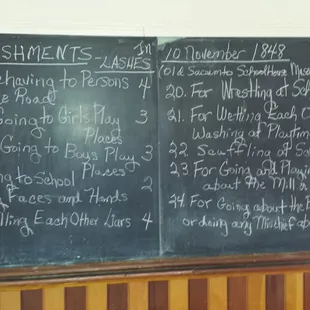 SHMENTS - In LASHES
having to Persons 4
e Road
oing to Girls Play 3
Places
Going to Boys Play 3
Places
ng to School 2
Faces and Hands
lling Each Other Liars 4
10 November 1848
Old Schoolhouse Muse
20. For Wrestling at S
21. For Wetting Each O
Washing at Playtim
22. Scuffling at S
23 For Going and Playin
about the Mill or
24 For Going about the B
or doing any Mischief ab